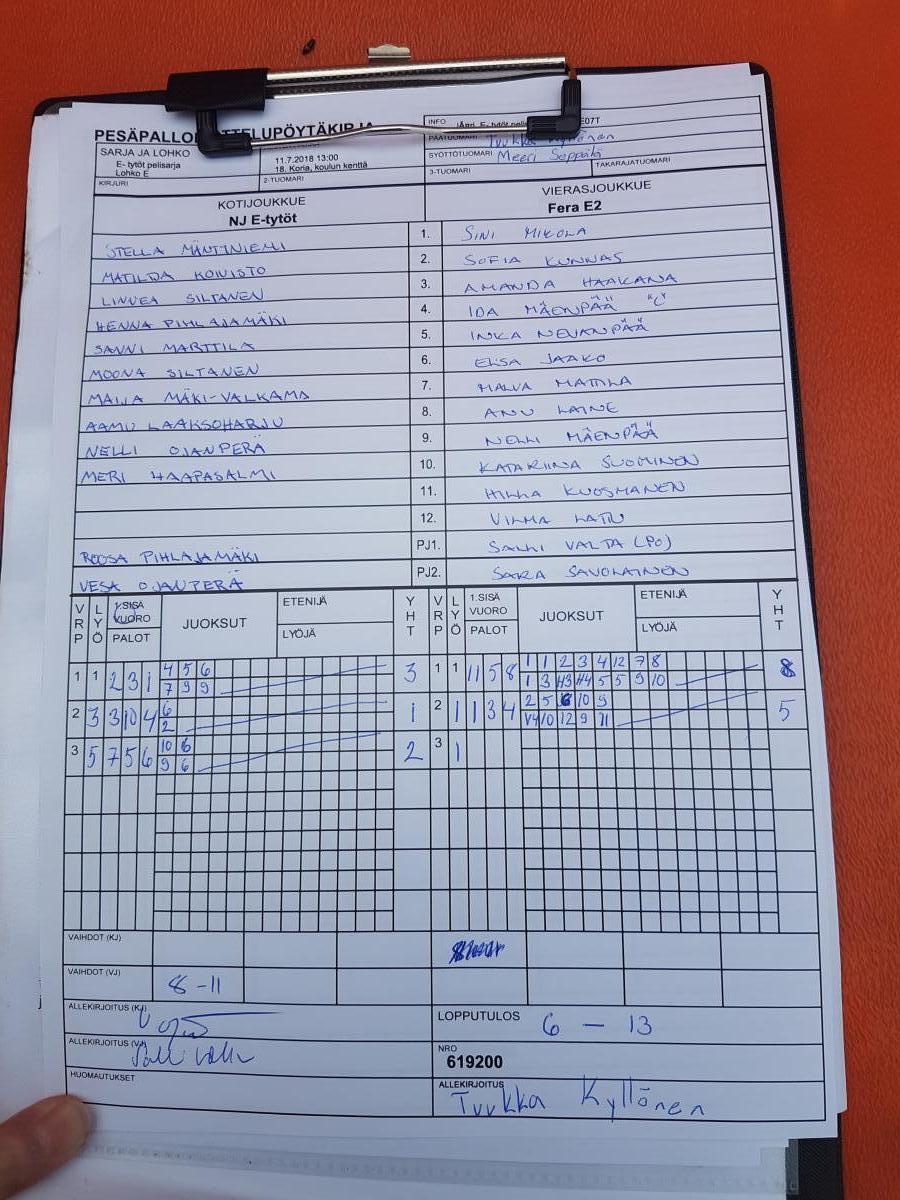 PESÄPALLO
INFO
E07T
SARJA JA LOHKO
E- tytöt pelisarja
Lohko E
11.7.2018 13:00
18. Koria, koulun kenttä
PÄÄTUOMARI Tuukka Kyllönen
SYÖTTÖTUOMARI Meeri Seppälä
KIRJURI
2-TUOMARI
3-TUOMARI
TAKARAJATUOMARI
KOTIJOUKKUE
NJ E-tytöt
VIERASJOUKKUE
Fera E2
STELLA MÄNTTNIEMI 1. SINI MIKOLA
MATILDA KOIVISTO 2. SOFIA KUNNAS
LINNEA SILTANEN 3. AMANDA HAAKANA
HENNA PIHLAJAMÄKI 4. IDA MÄENPÄÄ "C"
SANNI MARTTILA 5. INKA NEVANPÄÄ
MOONA SILTANEN 6. ELISA JAAKO
MAIJA MÄKI-VALKAMA 7. MALVA MATTILA
AAMU LAAKSOHARJU 8. ANU LAINE
NELLI OJANPERÄ 9. NELLI MÄENPÄÄ
MERI HAAPASALMI 10. KATARIINA SUOMINEN
11. HILLA KUOSMANEN
12. VILMA LATIU
ROOSA PIHLAJAMÄKI PJ1. SALLI VALTA (PO)
VESA OJANPERÄ PJ2. SARA SAVOLAINEN
VRP LYÖ 1.SISÄ VUORO PALOT JUOKSUT ETENIJÄ LYÖJÄ YHT VRP LYÖ 1.SISÄ VUORO PALOT JUOKSUT ETENIJÄ LYÖJÄ YHT
1 1 2 3 1 4 5 6 3 1 1 11 5 8 1 1 2 3 4 12 7 8 8
7 9 9 1 3 H3 H4 5 5 9 10
2 3 3 10 4 6 1 2 1 1 3 4 2 5 6 10 9 5
2 V4 10 12 9 11
3 5 7 5 6 10 6 2 3 1
9 6
VAIHDOT (KJ)
VAIHDOT (VJ) 8 - 11
ALLEKIRJOITUS (KJ)
LOPPUTULOS 6 - 13
ALLEKIRJOITUS (VJ)
NRO
619200
HUOMAUTUKSET
ALLEKIRJOITUS
Tuukka Kyllönen